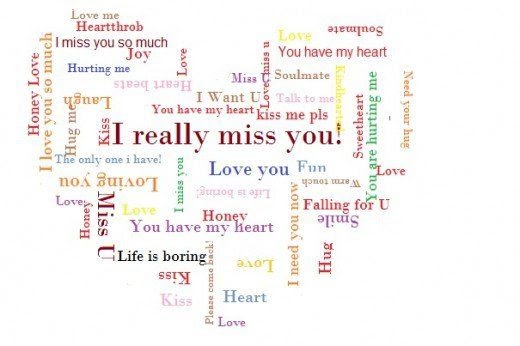 Love me
Heartthrob
Soulmate
I miss you so much
Joy
You have my heart
Love
Love, miss u
Hurting me
Heart beats
Miss U
Soulmate
Kindhearted
Need your hug
Honey Love
I love you so much
Laugh
I Want U
Talk to me
You have my heart
kiss me pls
Sweetheart
You are hurting me
Hug me
Kiss
I really miss you!
The only one i have!
Love you
Fun
Love
Loving you
I miss you
Life is boring!
Warm touch
Love
Honey
Miss U
Love
Honey
I need you now
Falling for U
Smile
You have my heart
Life is boring
Please come back!
Love
Hug
Kiss
Kiss
Heart
Love